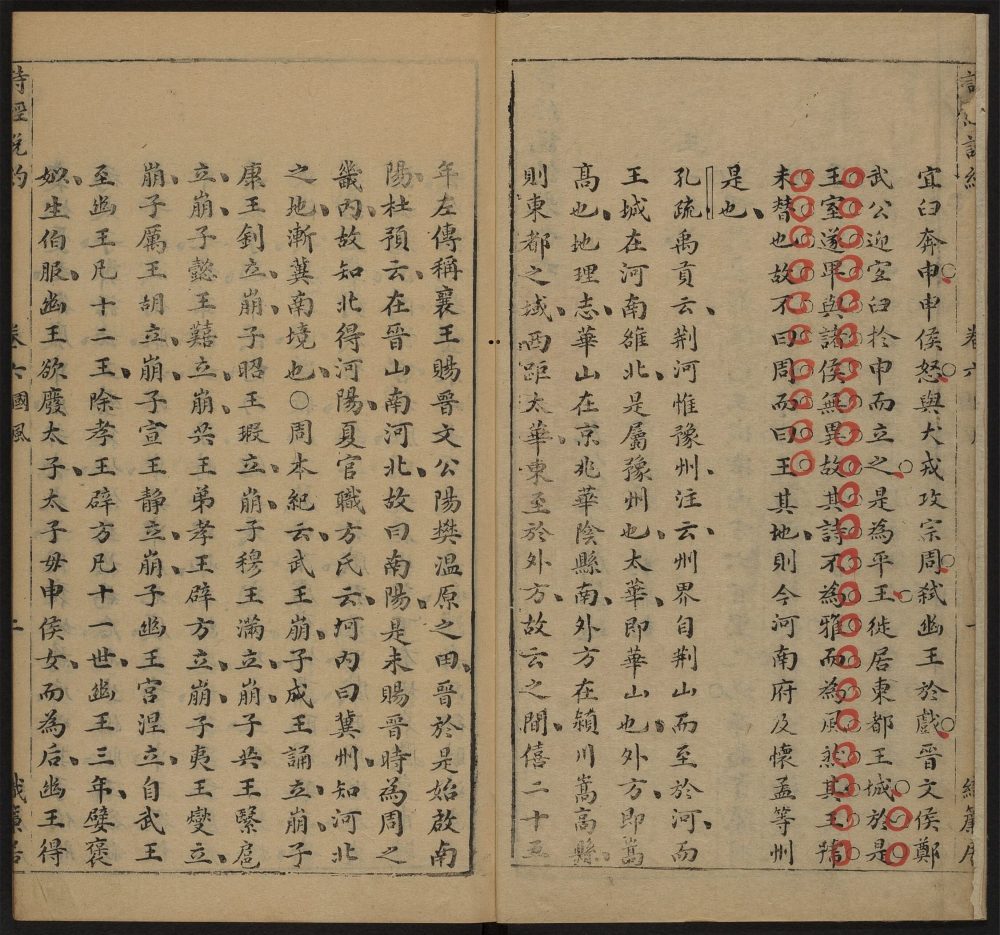 宜臼奔申申侯怒與犬戎攻宗周弒幽王於戲晉文侯鄭
武公迎宜臼於申而立之是為平王徙居東都王城於是
王室遂卑與諸侯無異故其詩不為雅而為風然其王號
未替也故不曰周而曰王其地則今河南府及懷孟等州
是也
孔疏禹貢云荆河惟豫州注云州界自荆山而至於河而
王城在河南雒北是屬豫州也太華即華山也外方即嵩
高也地理志華山在京兆華陰縣南外方在潁川嵩高縣
則東都之域西距太華東至於外方故云之間僖二十五
年左傳稱襄王賜晉文公陽樊溫原之田晉於是始啟南
陽杜預云在晉山南河北故曰南陽是未賜晉時為周之
畿內故知北得河陽夏官職方氏云河內曰冀州知河北
之地漸冀南境也○周本紀云武王崩子成王誦立崩子
康王釗立崩子昭王瑕立崩子穆王滿立崩子共王緊扈
立崩子懿王囏立崩共王弟孝王辟方立崩子夷王燮立
崩子厲王胡立崩子宣王静立崩子幽王宮湼立自武王
至幽王凡十二王除孝王辟方凡十一世幽王三年嬖褒
姒生伯服幽王欲廢太子太子母申侯女而為后幽王得
詩經說約
卷六國風
二